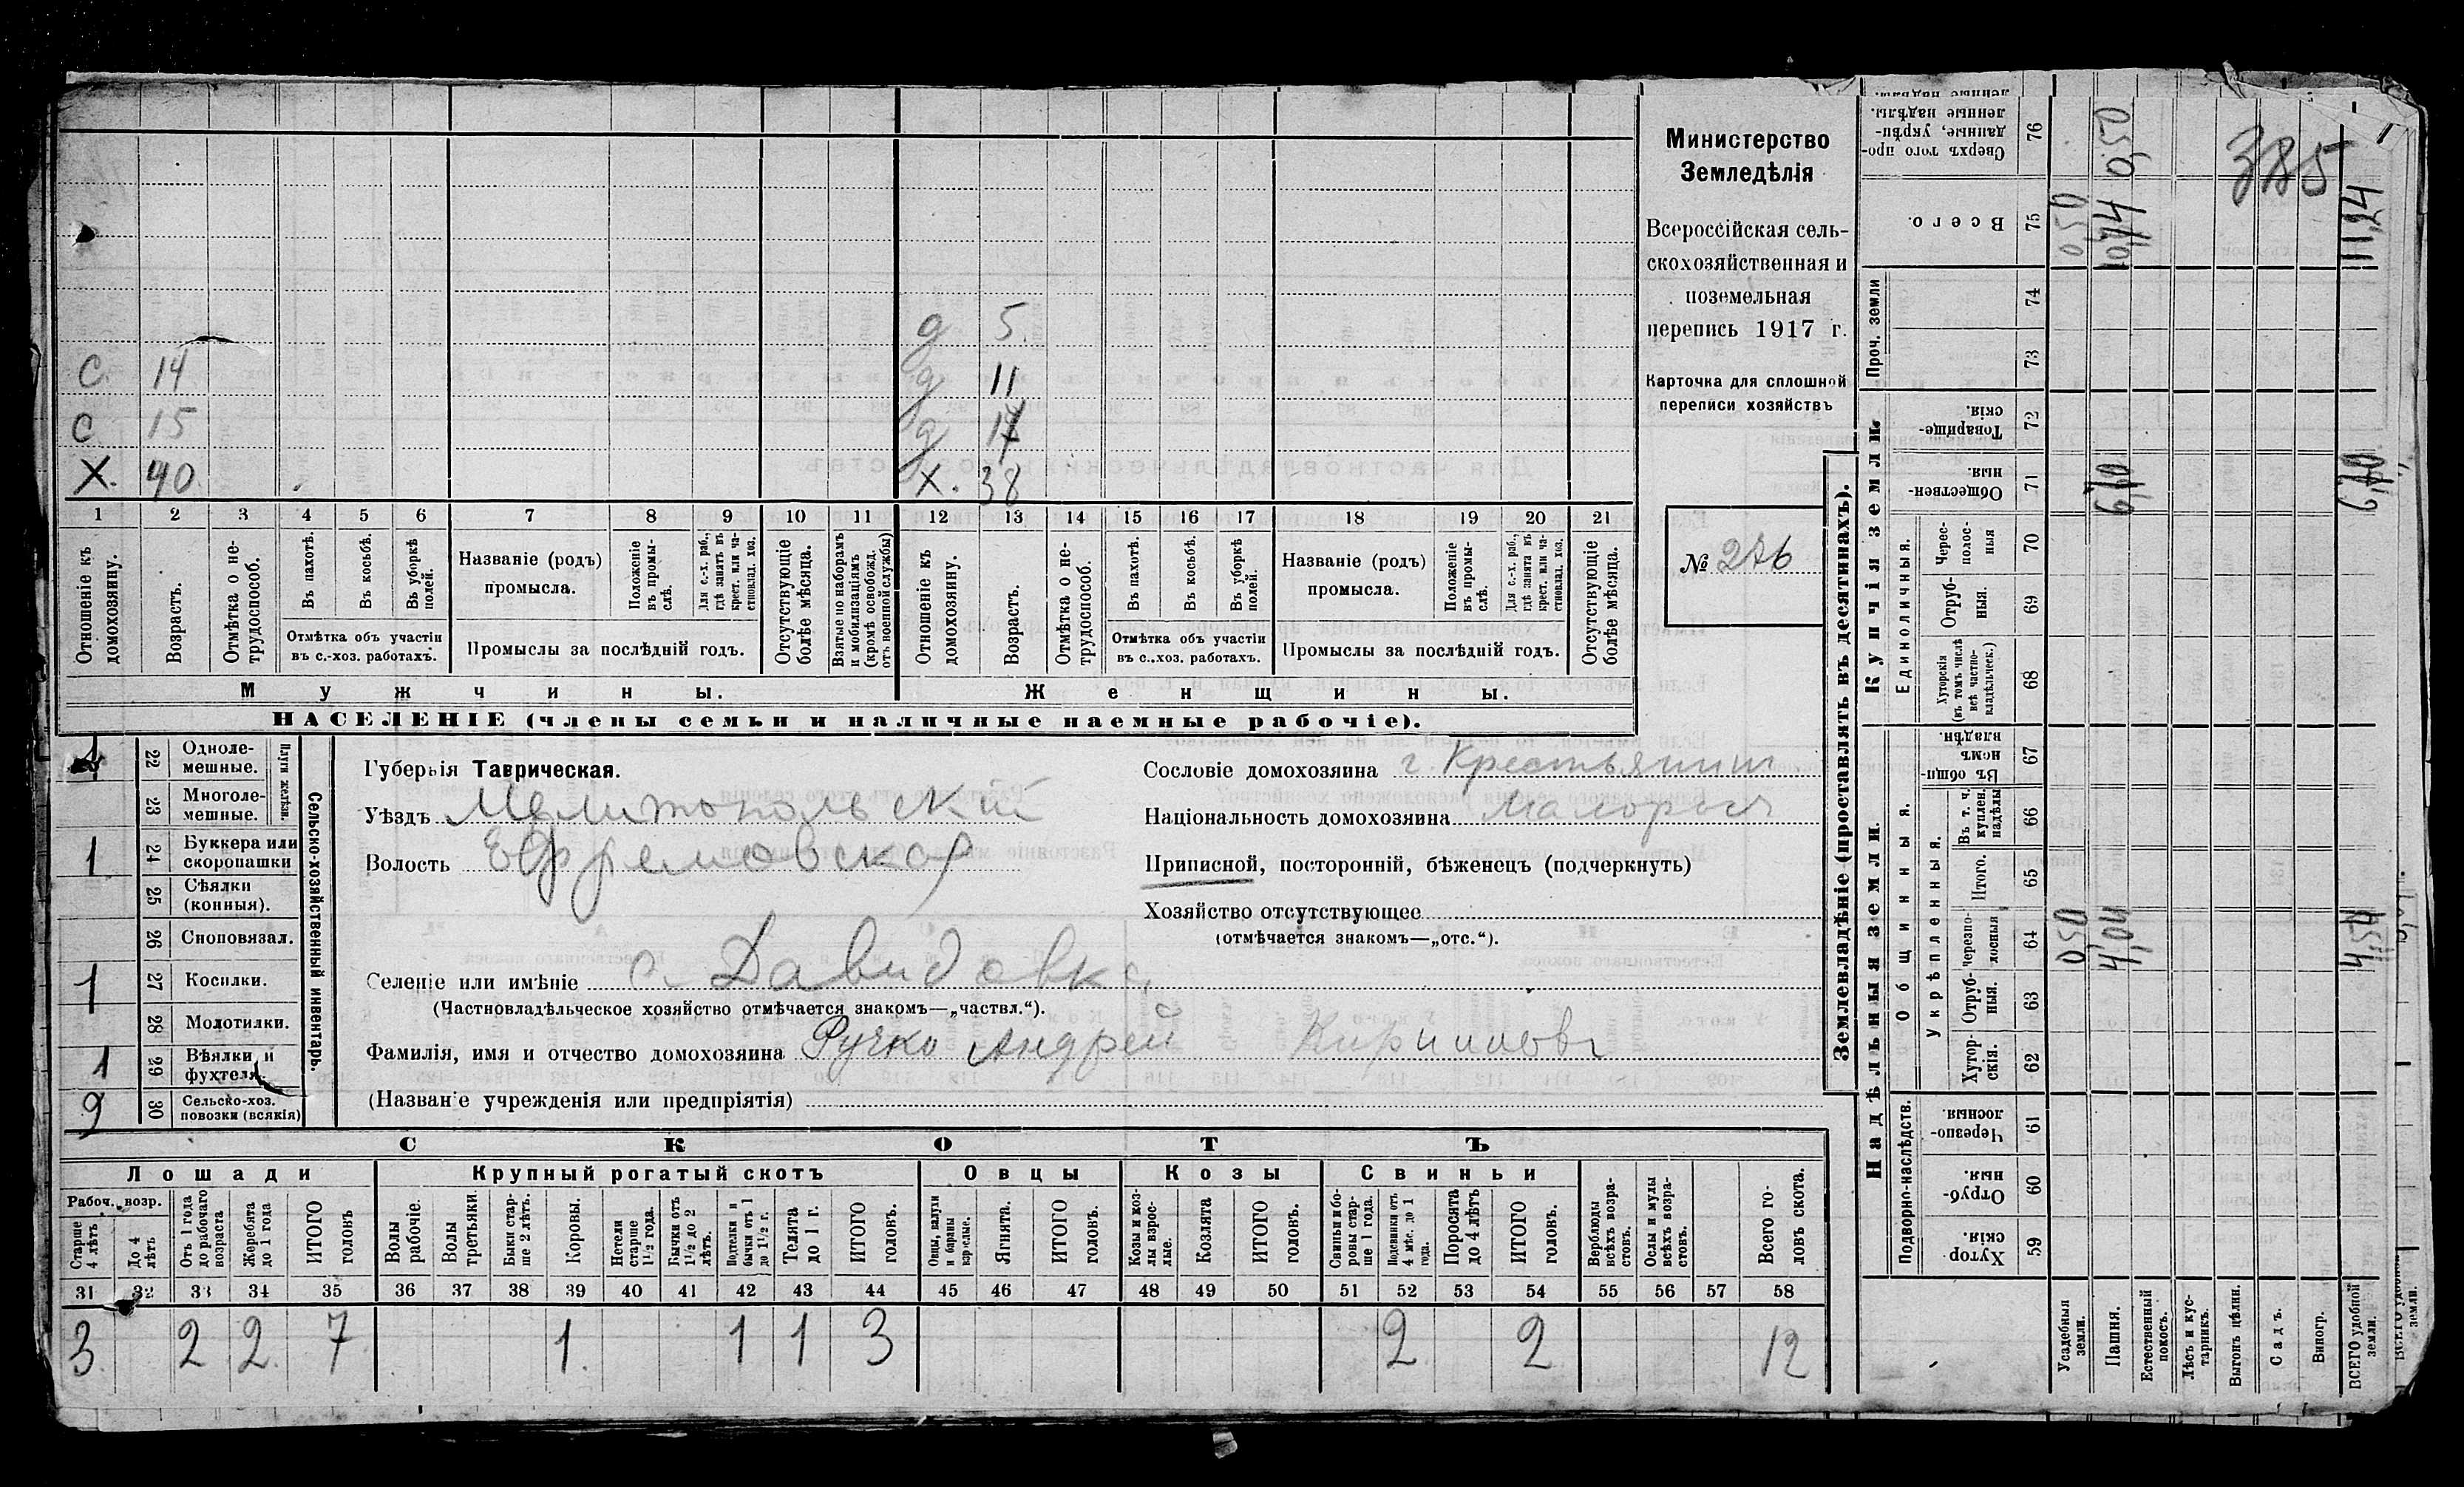 Министерство
Земледѣлія
Всероссійская сель-
скохозяйственная и
поземельная
перепись 1917 г.
Карточка для сплошной
переписи хозяйствъ
№ 276
385
д 5
С. 14 д 11
С 15 д
Х. 40 Х. 38
1 2 3 4 5 6 7 8 9 10 11 12 13 14 15 16 17 18 19 20 21
Отношеніе къ домохозяину.
Возрастъ.
Отмѣтка о не-трудоспособ.
Въ пахотѣ.
Въ косьбѣ.
Въ уборкѣ полей.
Отмѣтка объ участіи въ с.-хоз. работахъ.
Названіе (родъ) промысла.
Положеніе въ промы-слѣ.
Для с.-х. раб., гдѣ занятъ въ крест. или ча-стновлад. хоз.
Промыслы за послѣдній годъ.
Отсутствующіе болѣе мѣсяца.
Взятые по наборамъ и мобилизаціямъ (кромѣ освобожд. отъ военной службы)
Отношеніе къ домохозяину.
Возрастъ.
Отмѣтка о не-трудоспособ.
Въ пахотѣ.
Въ косьбѣ.
Въ уборкѣ полей.
Отмѣтка объ участіи въ с.-хоз. работахъ.
Названіе (родъ) промысла.
Положеніе въ промы-слѣ.
Для с.-х. раб., гдѣ занята въ крест. или ча-стновлад. хоз.
Промыслы за послѣдній годъ.
Отсутствующіе болѣе мѣсяца.
Мужчины. Женщины.
НАСЕЛЕНІЕ (члены семьи и наличные наемные рабочіе).
Сельско-хозяйственный инвентарь.
Плуги желѣзн.
22 Одноле-мешные.
23 Многоле-мешные.
1 24 Буккера или скоропашки
25 Сѣялки (конныя).
26 Сноповязал.
1 27 Косилки.
28 Молотилки.
1 29 Вѣялки и фухтеля.
2 30 Сельско-хоз. повозки (всякія)
Губернія Таврическая.
Уѣздъ Мелитопольскій
Волость Ефремовская
Селеніе или имѣніе с. Давидовка
(Частновладѣльческое хозяйство отмѣчается знакомъ—„частвл.“).
Фамилія, имя и отчество домохозяина Ручко Андрей Кириллов
(Названіе учрежденія или предпріятія)
Сословіе домохозяина г. Крестьянин
Національность домохозяина Малоросъ
Приписной, посторонній, бѣженецъ (подчеркнуть)
Хозяйство отсутствующее
(отмѣчается знакомъ—„отс.“).
СКОТЪ
Лошади Крупный рогатый скотъ Овцы Козы Свиньи
Рабоч. возр.
Старше 4 лѣтъ
До 4 лѣтъ
Отъ 1 года до рабочаго возраста
Жеребята до 1 года
ИТОГО головъ
Волы рабочіе.
Волы третьяки.
Быки стар-ше 2 лѣтъ.
Коровы.
Нетели старше 1½ года.
Бычки отъ 1½ до 2 лѣтъ.
Подтелки и бычки отъ 1 до 1½ г.
Телята до 1 г.
ИТОГО головъ.
Овцы, валухи и бараны взрослые.
Ягнята.
ИТОГО головъ.
Козы и коз-лы взрос-лые.
Козлята
ИТОГО головъ.
Свиньи и бо-ровы стар-ше 1 года.
Подсвинки отъ 4 мѣс. до 1 года.
Поросята до 4 лѣтъ
ИТОГО головъ.
Верблюды всѣхъ возра-стовъ.
Ослы и мулы всѣхъ возра-стовъ.
Всего го-ловъ скота.
31 32 33 34 35 36 37 38 39 40 41 42 43 44 45 46 47 48 49 50 51 52 53 54 55 56 57 58
3 2 2 7 1 1 1 3 2 2 12
Землевладѣніе (проставлять въ десятинахъ).
Купчія земли.
Надѣльныя земли.
Сверхъ того про-данные, укрѣп-ленные надѣлы. 76 0,50
Всего. 75 0,50 10,74 11,24
Проч. земли 74 73
Товарище-скія. 72
Обществен-ныя. 71 6,70 6,70
Единоличныя.
Черес-полос-ныя 70
Отруб-ныя. 69
Хуторскія (въ томъ числѣ всѣ частно-владѣльческ.) 68
Общинныя.
Въ общи-номъ владѣн. 67
Укрѣпленныя.
Въ т. ч. куплен. надѣлы 66
Итого. 65
Черезпо-лосныя 64 0,50 4,04 4,54
Отруб-ныя. 63
Хутор-скія. 62
Подворно-наслѣдств.
Черезпо-лосныя. 61
Отруб-ныя. 60
Хутор-скія. 59
Усадебныя земли.
Пашня.
Естественный покосъ.
Лѣсъ и кус-тарникъ.
Выгонъ цѣлин.
Садъ.
Виногр.
ВСЕГО удобной земли.